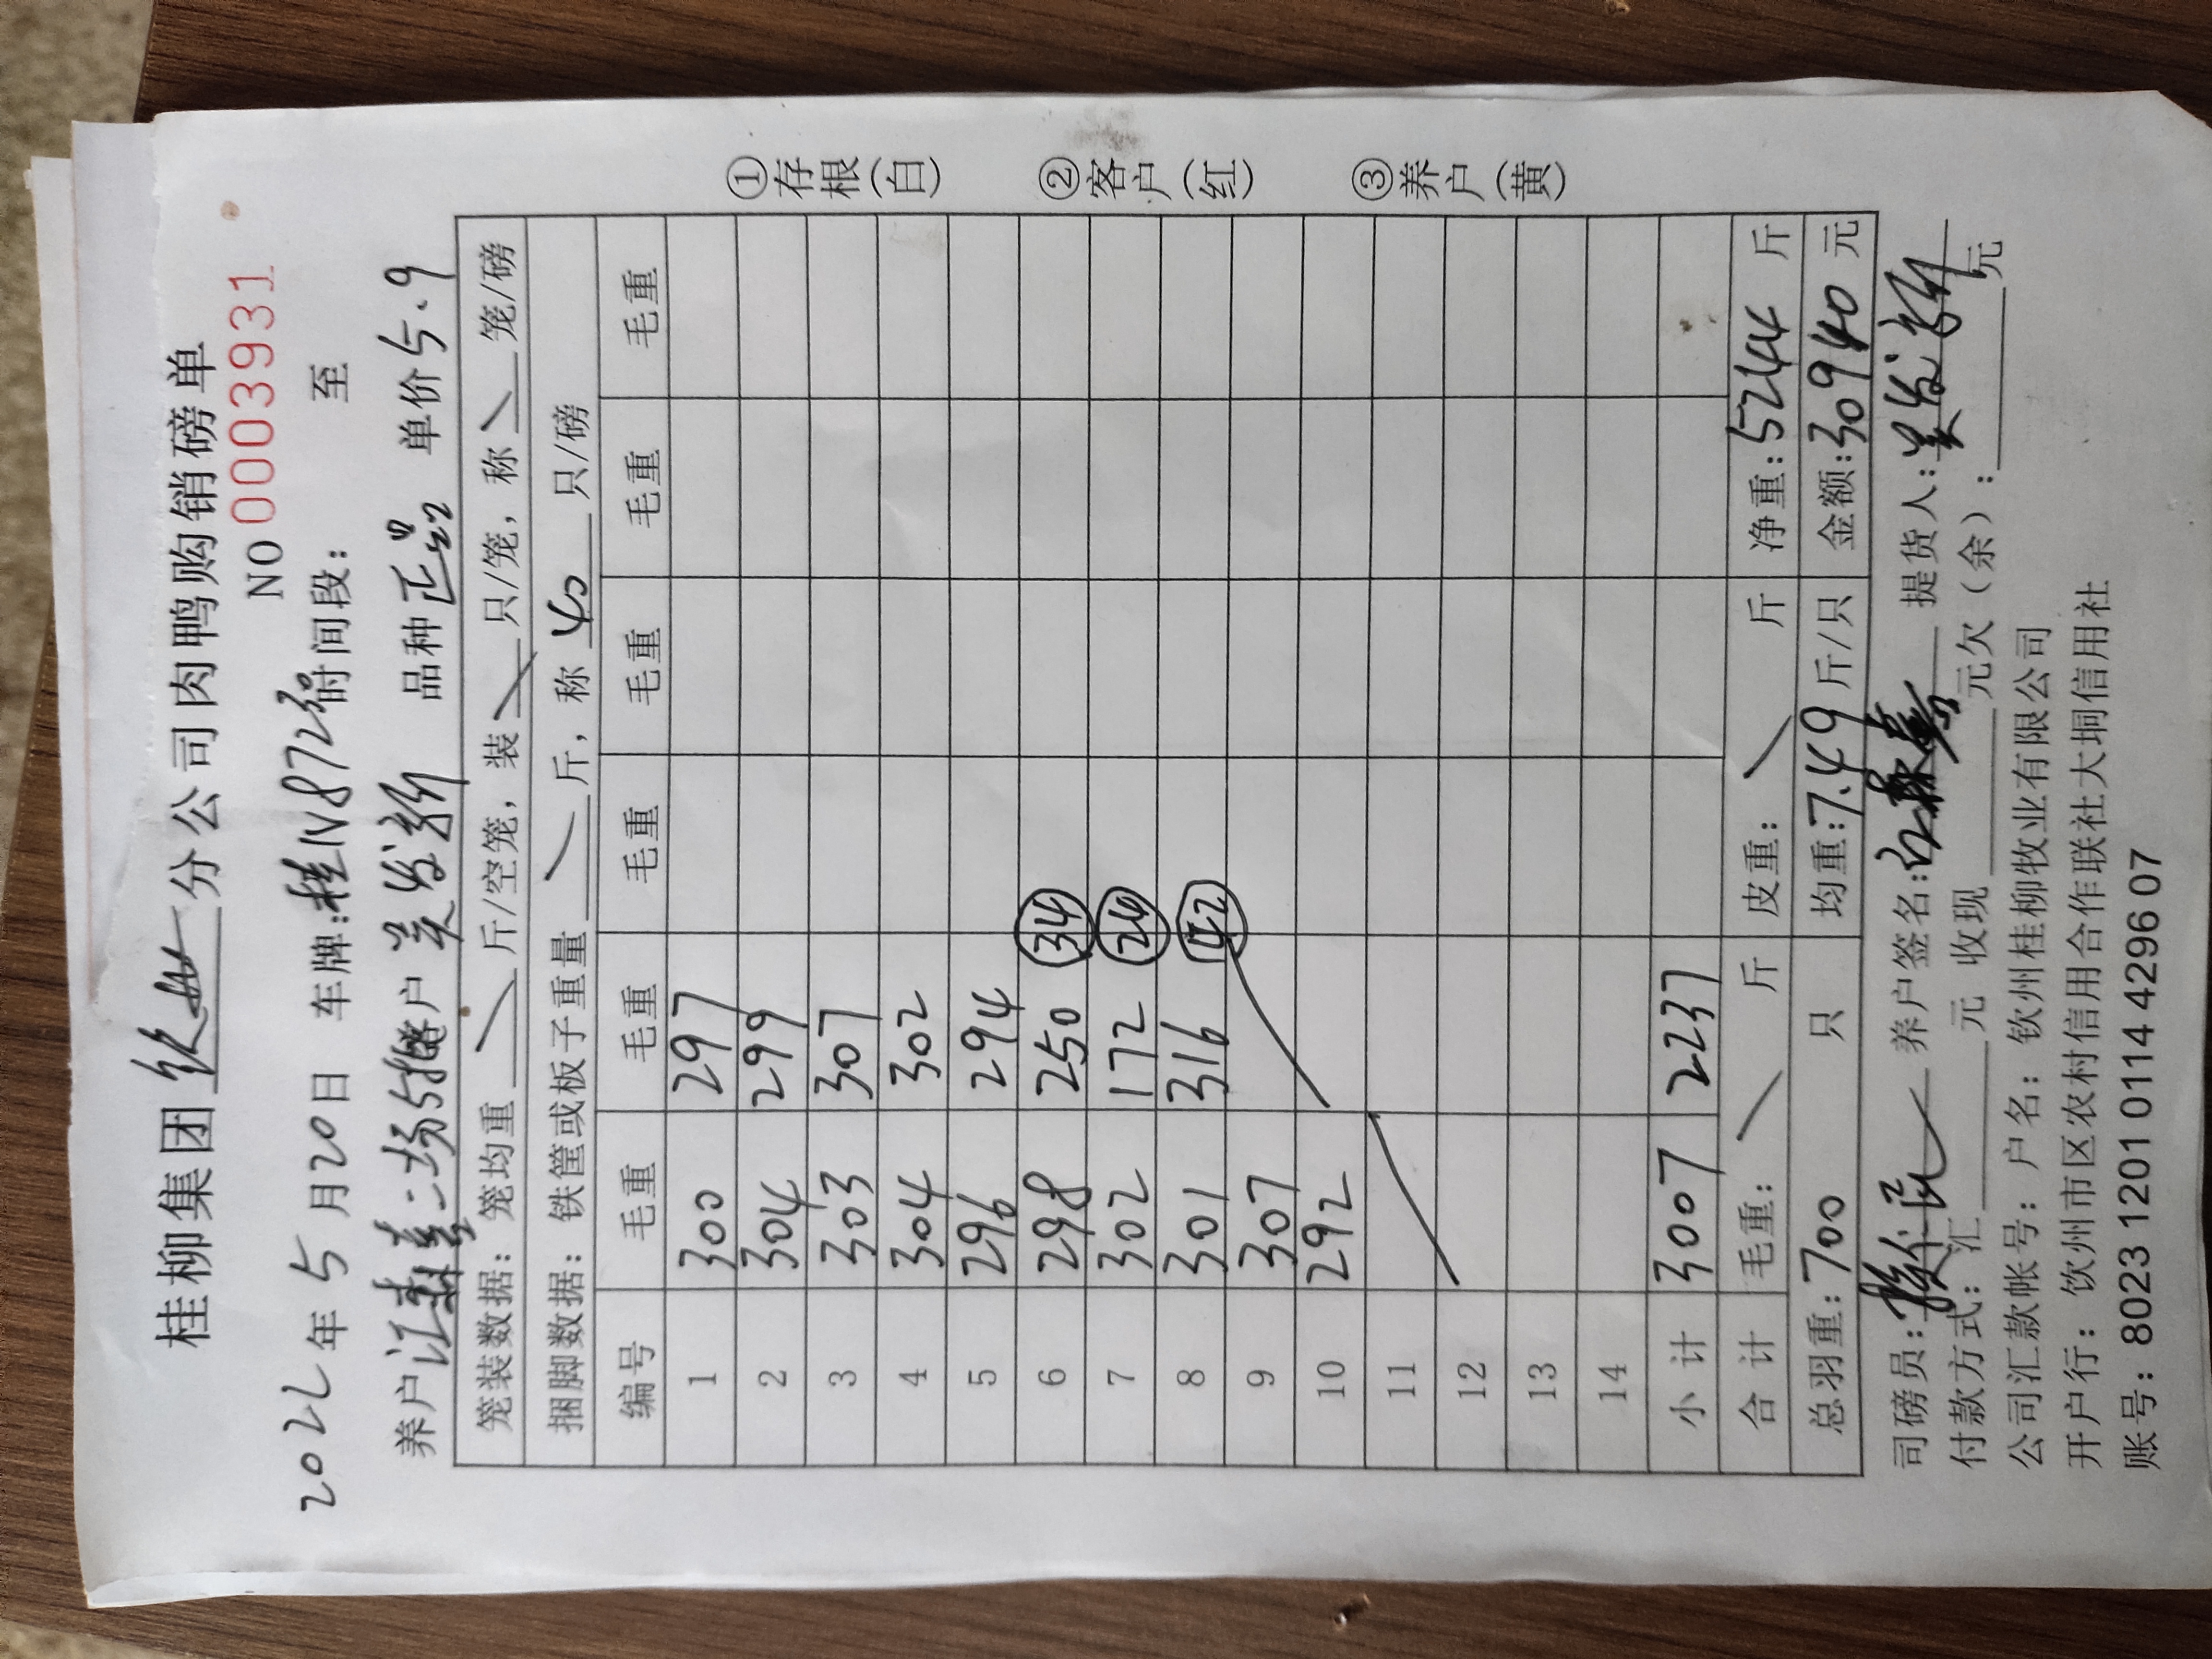 桂柳集团 钦州 分公司肉鸭购销磅单
NO 0003931
2022年 5 月 20 日 车牌:桂N8726 时间段: 至
养户 江森喜二场5 客户 吴发新 品种 正品2 单价 5.9
笼装数据: 笼均重 斤/空笼, 装 只/笼, 称 笼/磅
捆脚数据: 铁筐或板子重量 斤, 称 40 只/磅
编号 毛重 毛重 毛重 毛重 毛重 毛重
1 300 297
2 304 299
3 303 307
4 304 302
5 296 294
6 298 250 34
7 302 172 24
8 301 316 42
9 307
10 292
11
12
13
14
小 计 3007 2237
合 计 毛重: 斤 皮重: 斤 净重: 5244 斤
总羽重: 700 只 均重: 7.49 斤/只 金额: 30940 元
司磅员: 养户签名: 江森喜 提货人: 吴发新
付款方式: 汇 元 收现 元欠(余): 元
公司汇款帐号: 户名: 钦州桂柳牧业有限公司
开户行: 钦州市区农村信用合作联社大垌信用社
账号: 8023 1201 0114 4296 07
①存根(白) ②客户(红) ③养户(黄)